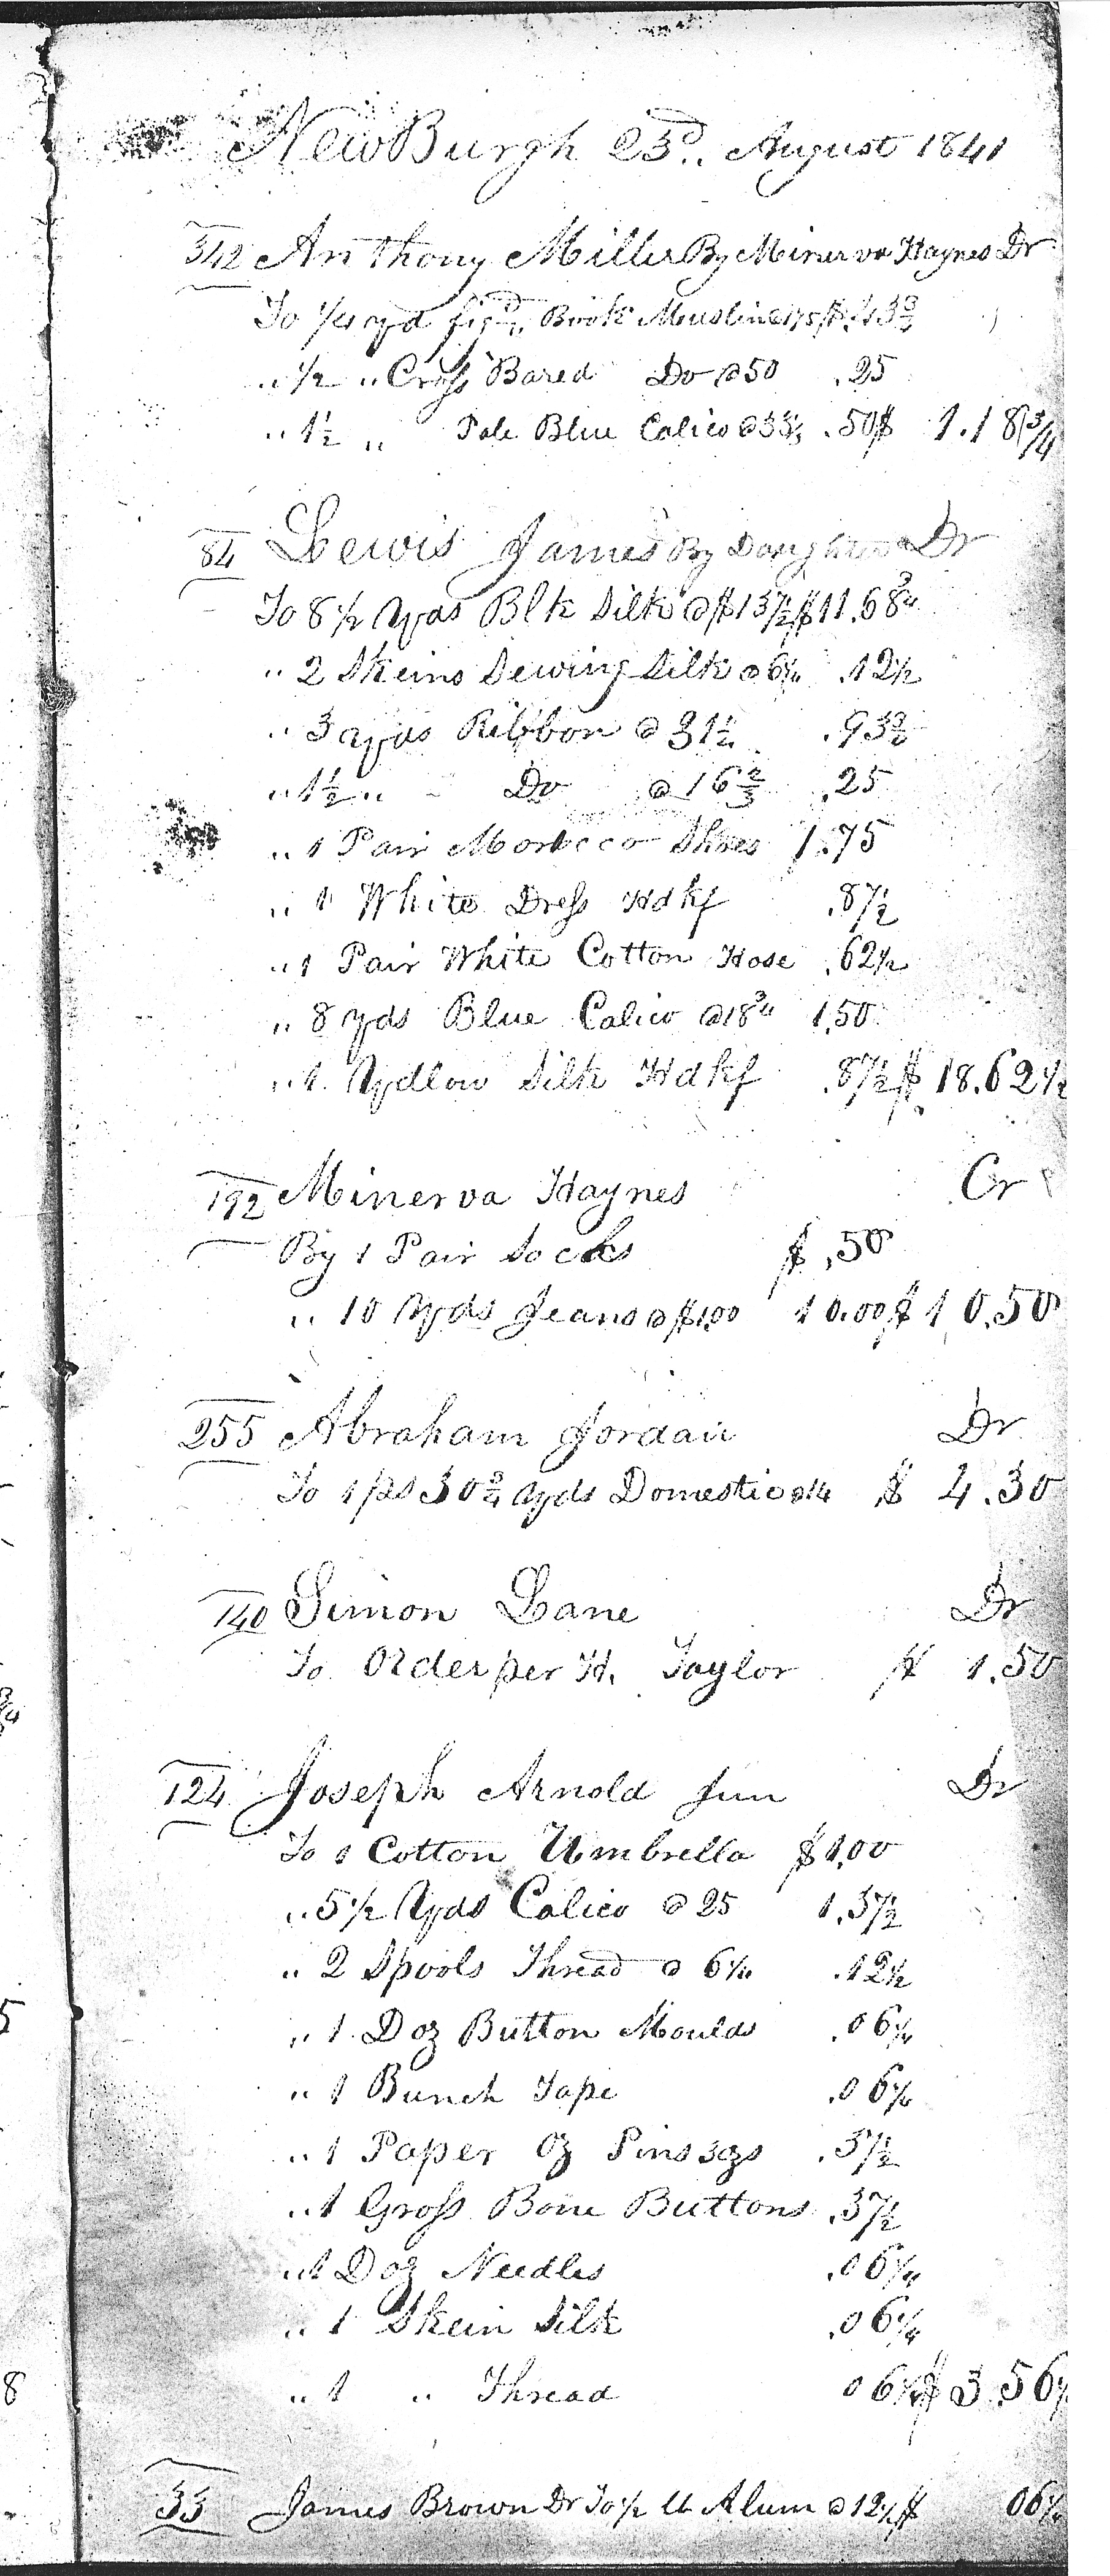 NewBurgh 23d.. August 1841
342 Anthony Miller By Minerva Haynes Dr
To 1/4 yd figd.. Book Muslin @ 175 $ .43 3/4
.. 1/2 .. Cross Bared Do @ 50 .25
.. 1 1/2 .. Pale Blue Calico @ 33 1/3 .50 $ 1.18 3/4
84 Lewis James By Daughter Dr
To 8 1/2 Yds Blk Silk @ $137 1/2 $11.68 3/4
.. 2 Skeins Sewing Silk @ 6 1/4 .12 1/2
.. 3 yds Ribbon @ 31 1/4 .93 3/4
.. 1 1/2 .. Do @ 16 2/3 .25
.. 1 Pair Morocco Shoes 1.75
.. 1 White Dress Hdkf .87 1/2
.. 1 Pair White Cotton Hose .62 1/2
.. 8 yds Blue Calico @ 18 3/4 1.50
.. 1. Yellow Silk Hdkf .87 1/2 $ 18.62 1/2
192 Minerva Haynes Cr
By 1 Pair Socks $ .50
.. 10 Yds Jeans @ $1.00 10.00 $ 10.50
255 Abraham Jordan Dr
To 1 ps 30 3/4 Yds Domestic @ 14 $ 4.30
140 Simon Lane Dr
To Order per H. Taylor $ 1.50
124 Joseph Arnold Jun Dr
To 1 Cotton Umbrella $1.00
.. 5 1/2 Yds Calico @ 25 1.37 1/2
.. 2 Spools Thread @ 6 1/4 .12 1/2
.. 1 Doz Button Moulds .06 1/4
.. 1 Bunch Tape .06 1/4
.. 1 Paper Pins .37 1/2
.. 1 Gross Bone Buttons .37 1/2
.. 1 Doz Needles .06 1/4
.. 1 Skein Silk .06 1/4
.. 1 .. Thread 06 1/4 $ 3.56
33 James Brown Dr To 1/2 lb Alum @ 12 1/2 $ 06 1/4
5
8